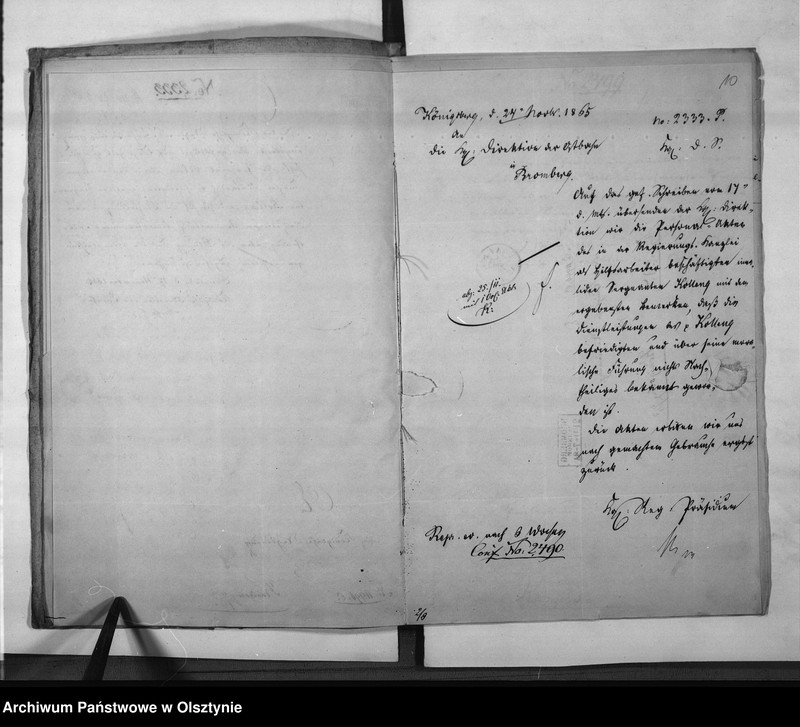 10
Königsberg, d. 24t Novb. 1865
No: 2333. P.
An
die Kgl. Direktion der Ostbahn
Kgl. d. P.
zu
Bromberg.
Auf das gef. Schreiben vom 17t
d. Mts. übersenden der Kgl. Direk-
tion wir die Personal-Akten
des in der Regierungs-Kanzlei
als Hilfsarbeiter beschäftigten inva-
liden Sergeanten Kolleng mit dem
ergebensten Bemerken, daß die
Dienstleistungen des p Kolleng
befriedigten und über seine mora-
lische Führung nichts Nach-
theiliges bekannt gewor-
den ist.
Die Akten erbitten wir uns
nach gemachtem Gebrauche ergebst
zurück.
Kgl. Reg. Präsidium
abg. 25.
mit 1 Vol.
Repr. w. nach 6 Wochen
Conf. No: 2490.
Archiwum Państwowe w Olsztynie